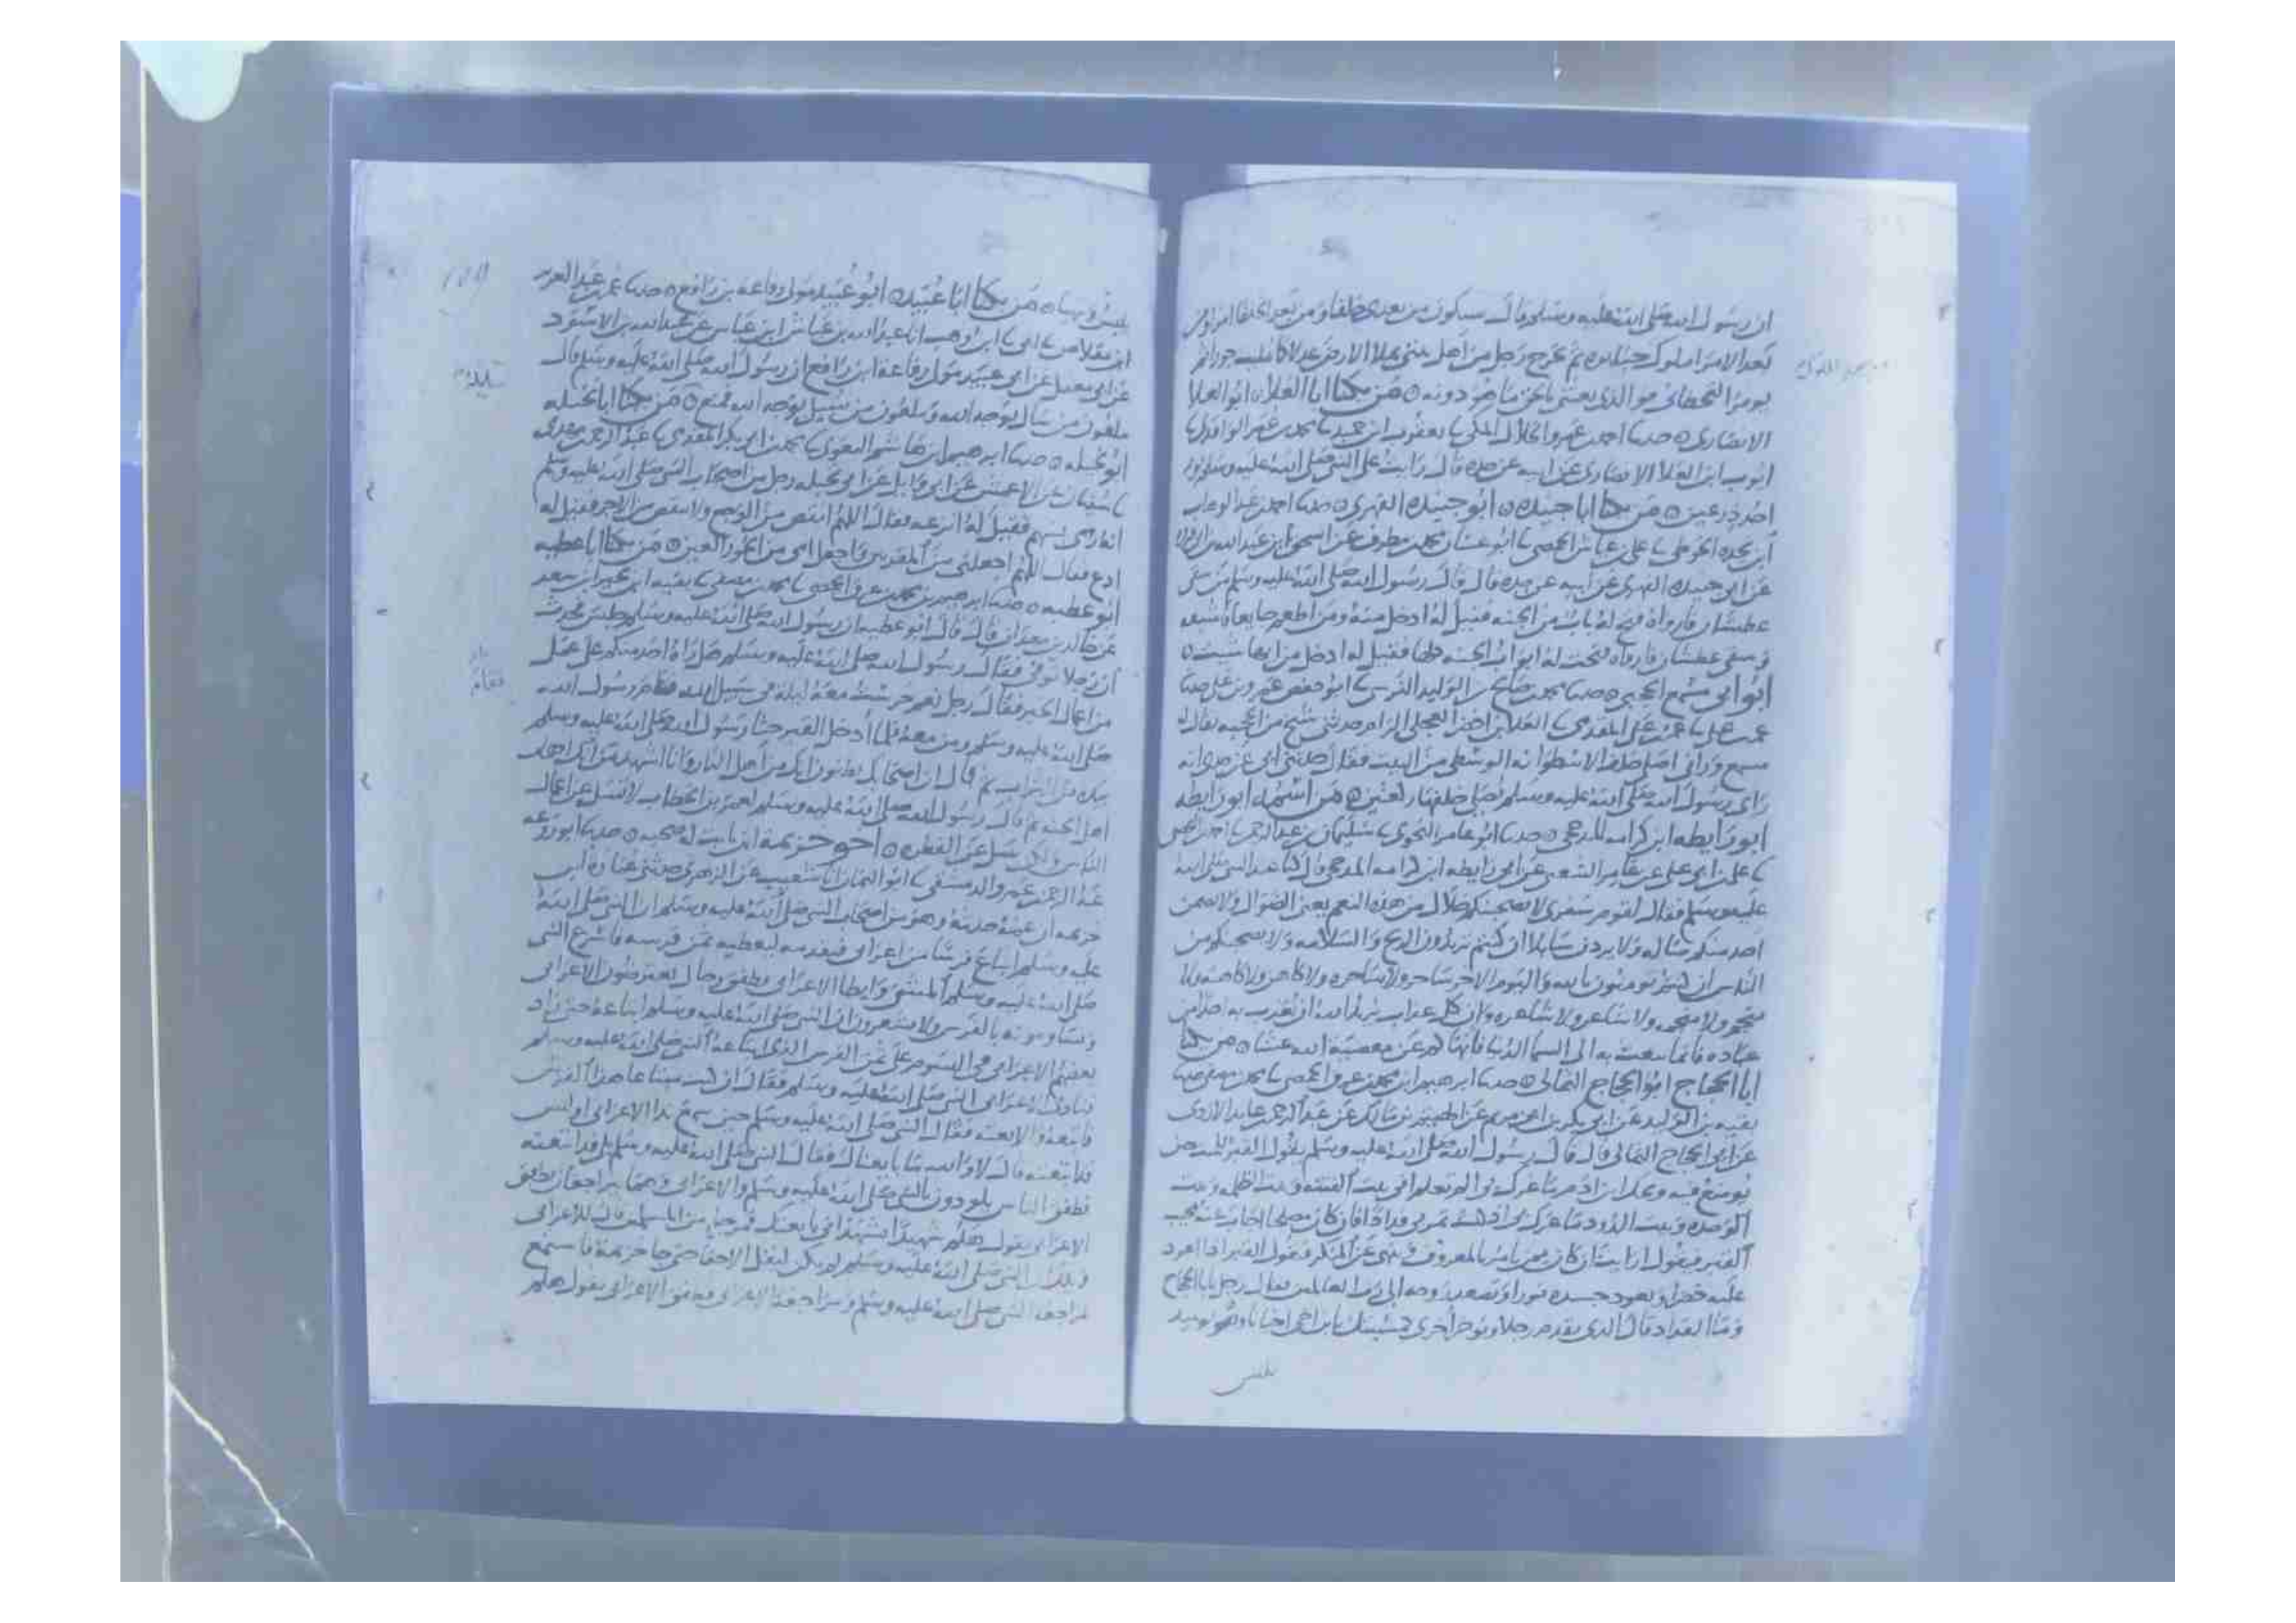 ان رسول الله صلى الله عليه وسلم قال سيكون من بعدي خلفا ومن بعد الخلفا امرا ومن
بعد الامرا ملوك جبابره ثم يخرج رجل من اهل بيتي يملا الارض عدلا كما مليت جورا ثم
يومر القحطاني فوالذي بعثني بالحق ما هو دونه ٥ من يكنا ابا العلا ٥ ابو العلا
الانصاري ٥ حدثنا احمد بن عمرو الخلال المكي يعقوب ابن حميد محمد بن عمر الواقدي
ايوب ابن العلا الانصاري عن ابيه عن جده قال رايت على النبي صلى الله عليه وسلم يوم
احد درعين ٥ من يكنا ابا ٥ ابو الفهري ٥ حدثنا احمد بن عبد الوهاب
ابن نجده الحوطي علي بن عياش الحمصي ابو غسان محمد بن مطرف عن اسحق ابن عبد الله بن
عن ابي الفهري عن ابيه عن جده قال قال رسول الله صلى الله عليه وسلم من سقى
عطشان فارواه فتح له باب من الجنه فقيل له ادخل منه ومن اطعم جايعا فاشبعه
وسقى عطشان فارواه فتحت له ابواب الجنه كلها فقيل له ادخل من ايها شيت ٥
ابو ابي حدثنا محمد بن صالح بن الوليد النرسي ابو حفص عمرو بن علي
عمر بن علي المقدمي العلا بن اخضر العجلي حدثني شيخ من الحجبه يقال له
مسمع وراني اصلي خلف الاسطوانه الوسطى من البيت فقال حدثني ابي عن جدي انه
راى رسول الله صلى الله عليه وسلم يصلي خلفها ركعتين ٥ من اسمه ابو رايطه
ابو رايطه ابن كرامه المذحجي ٥ حدثنا ابو عامر النحوي سليمان بن عبد الرحمن
علي بن ابي علي عن عامر الشعبي عن ابي رايطه ابن كرامه المذحجي قال كنا عند النبي صلى الله
عليه وسلم فقال لقوم سفر لا يصحبنكم ضلال من هذه النعم يعني الضوال ولا يضمن
احد منكم ضاله ولا يردن سايلا ان كنتم تريدون الربح والسلامه ولا يصحبنكم من
الناس ان كنتم تومنون بالله واليوم الاخر ساحر ولا ساحره ولا كاهن ولا كاهنه ولا
منجم ولا منجمه ولا شاعر ولا شاعره وان كل عذاب يريد الله ان يعذب به احدا من
عباده فانما يبعث به الى السما الدنيا فانهاكم عن معصية الله عشا ٥ من يكنا
ابا الحجاج ابو الحجاج الثمالي ٥ حدثنا ابرهيم ابن محمد بن عرق الحمصي محمد بن مصفى
بقيه بن الوليد عن ابي بكر بن ابي مريم عن الهيثم بن مالك عن عبد الرحمن بن عايذ الازدي
عن ابي الحجاج الثمالي قال قال رسول الله صلى الله عليه وسلم يقول القبر للميت حين
يوضع فيه ويحك ابن ادم ما غرك بي الم تعلم اني بيت الفتنه وبيت الظلمه وبيت
الوحده وبيت الدود ما غرك بي اذ كنت تمر بي فدادا فان كان مصلحا اجاب عنه مجيب
القبر فيقول ارايت ان كان ممن يامر بالمعروف وينهى عن المنكر فيقول القبر اذا اعود
عليه خضرا ويعود جسده نورا وتصعد روحه الى رب العالمين فقال رجل يا ابا الحجاج
وما الفداد قال الذي يقدم رجلا ويوخر اخرى كمشيتك يا ابن اخي احيانا وهو يوميذ
يلبس
يلبس ٥ من يكنا ابا عبيد ٥ ابو عبيد مولى رفاعة بن رافع ٥ حدثنا عمر بن عبد العزيز
ابن مقلاص ابي ابن وهب عبد الله بن عياش ابن عباس عن عبد الله بن الاسود
عن ابي معقل عن ابي عبيد مولى رفاعة ابن رافع ان رسول الله صلى الله عليه وسلم قال
ملعون من سال بوجه الله وملعون من سيل بوجه الله فمنع ٥ من يكنا ابا نخيله
ابو نخيله ٥ حدثنا ابرهيم ابن هاشم البغوي محمد بن ابي بكر المقدمي عبد الرحمن بن مهدي
سفيان عن الاعمش عن ابي وايل عن ابي نخيله رجل من اصحاب النبي صلى الله عليه وسلم
انه رمي بسهم فقيل له انزعه فقال اللهم انقص من الوجع ولا تنقص من الاجر فقيل له
ادع فقال اللهم اجعلني من المقربين واجعل امي من الحور العين ٥ من يكنا ابا عطيه
ابو عطيه ٥ حدثنا ابرهيم بن محمد بن عرق الحمصي محمد بن مصفى بقيه ابن بحير ابن سعد
عن خالد بن معدان قال قال ابو عطيه ان رسول الله صلى الله عليه وسلم جلس يحدث
ان رجلا توفي فقال رسول الله صلى الله عليه وسلم هل راه احد منكم على عمل
من اعمال الخير فقال رجل نعم حرست معه ليلة في سبيل الله فقام رسول الله
صلى الله عليه وسلم ومن معه فلما ادخل القبر حثا رسول الله صلى الله عليه وسلم
بيده من التراب ثم قال ان اصحابك يظنون انك من اهل النار وانا اشهد انك من اهل
اهل الجنه ثم قال رسول الله صلى الله عليه وسلم لعمر بن الخطاب لا تسل عن اعمال
الناس ولكن سل عن الفطره ٥ اخو خزيمة ابن ثابت له صحبه ٥ حدثنا ابو زرعه
عبد الرحمن بن عمرو الدمشقي ابو اليمان شعيب عن الزهري حدثني عمارة ابن
خزيمه ان عمه حدثه وهو من اصحاب النبي صلى الله عليه وسلم ان النبي صلى الله
عليه وسلم ابتاع فرسا من اعرابي ليعطيه ثمن فرسه فاسرع النبي
صلى الله عليه وسلم المشي وابطا الاعرابي وطفق رجال يعترضون الاعرابي
ويساومونه بالفرس ولا يشعرون ان النبي صلى الله عليه وسلم ابتاعه حتى زاد
بعضهم الاعرابي في السوم على ثمن الفرس الذي ابتاعه النبي صلى الله عليه وسلم
فنادى الاعرابي النبي صلى الله عليه وسلم فقال ان كنت مبتاعا هذا الفرس
فابتعه والا بعته فقال النبي صلى الله عليه وسلم حين سمع ندا الاعرابي اوليس
قد ابتعته قال لا والله ما بايعناك فقال النبي صلى الله عليه وسلم بل قد ابتعته
فطفق الناس يلوذون بالنبي صلى الله عليه وسلم والاعرابي وهما يتراجعان وطفق
الاعرابي يقول هلم شهيدا يشهد اني بايعتك فمن جا من المسلمين قال للاعرابي
ويلك ان النبي صلى الله عليه وسلم لم يكن ليقول الا حقا حتى جا خزيمة فاستمع
مراجعة النبي صلى الله عليه وسلم ومراجعة الاعرابي وطفق الاعرابي يقول هلم